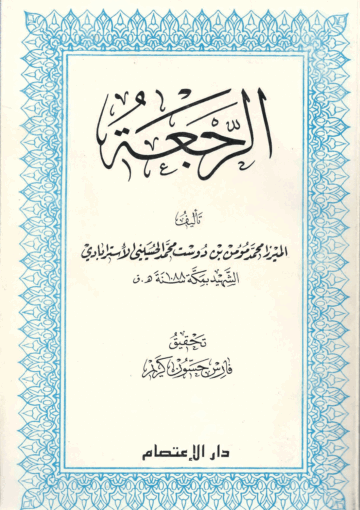 الرَّجْعَةُ
تأليف
الميرزا محمد مؤمن بن دوست محمد الحسيني الأسترابادي
الشهيد بمكة سنة ١٠٨٨ ه‍ . ق
تحقيق
فارس حسّون كريم
دار الإعتصام